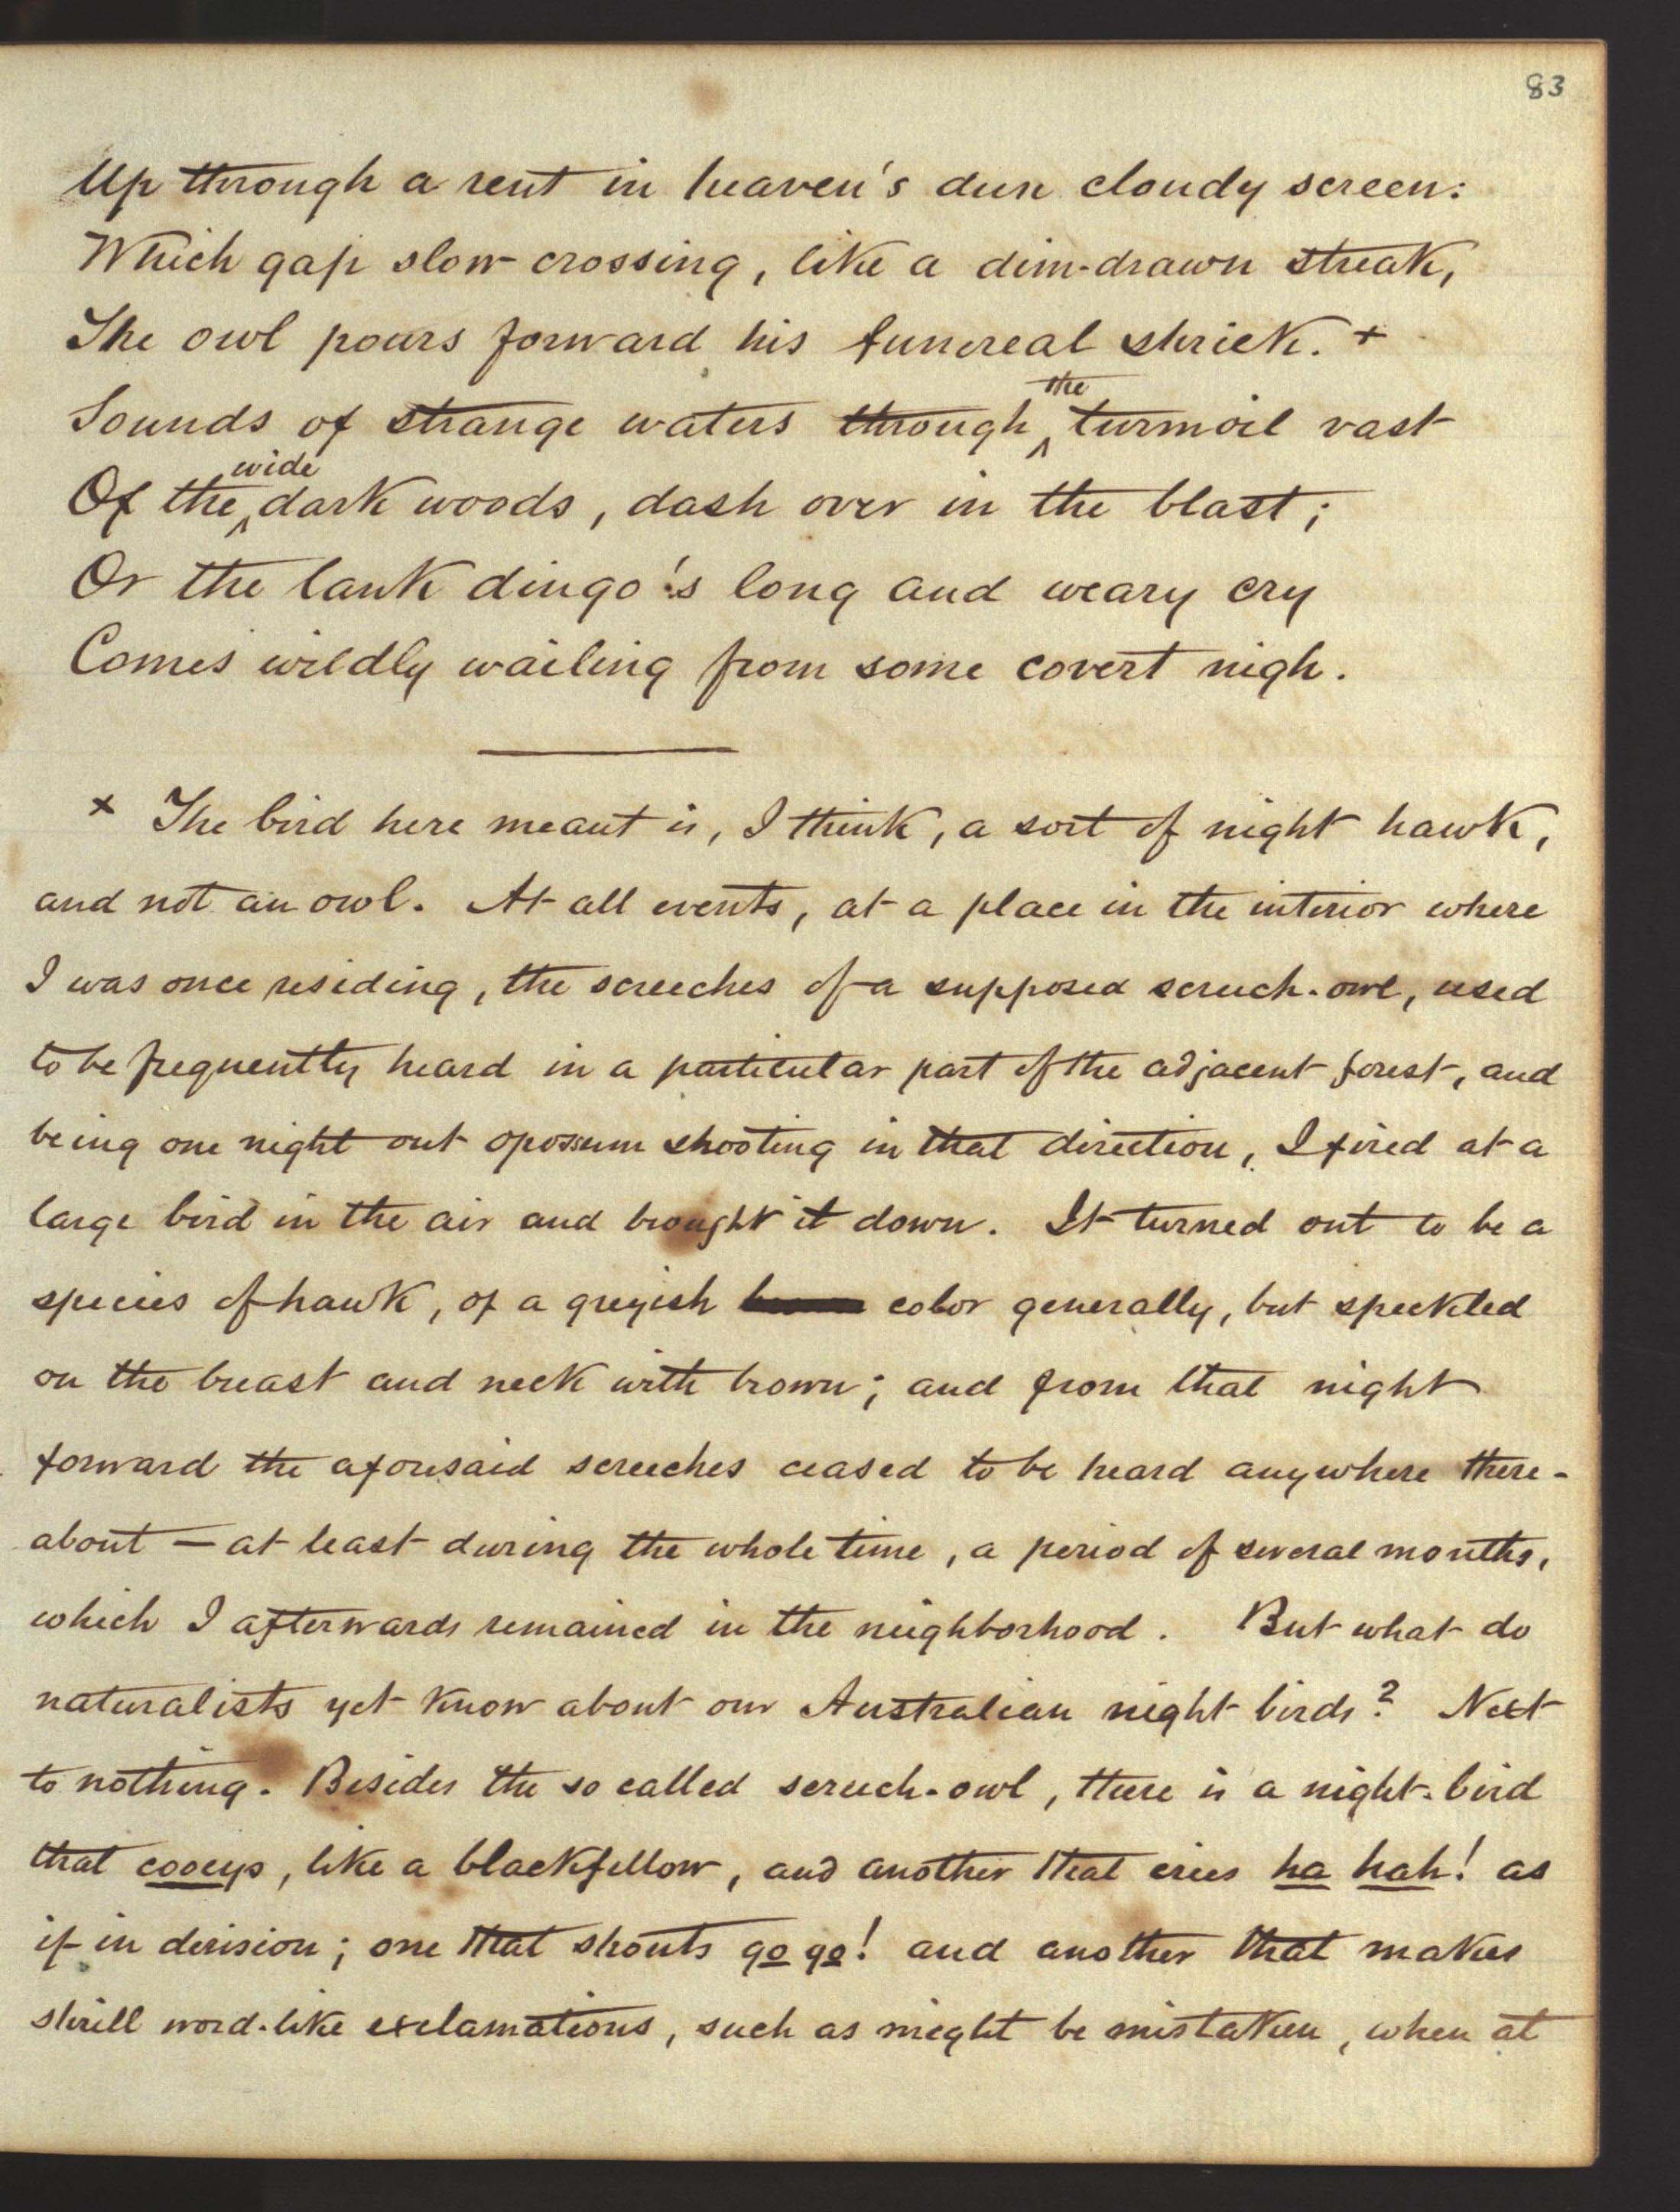 83
Up through a rent in heaven's dun cloudy screen:
Which gap slow crossing, like a dim-drawn streak,
The owl pours forward his funereal shriek. +
Sounds of strange waters through the turmoil vast
Of the wide dark woods, dash over in the blast;
Or the lank dingo's long and weary cry
Comes wildly wailing from some covert nigh.
x The bird here meant is, I think, a sort of night hawk,
and not an owl. At all events, at a place in the interior where
I was once residing, the screeches of a supposed screech-owl, used
to be frequently heard in a particular part of the adjacent forest, and
being one night out opossum shooting in that direction, I fired at a
large bird in the air and brought it down. It turned out to be a
species of hawk, of a greyish color generally, but speckled
on the breast and neck with brown; and from that night
forward the aforesaid screeches ceased to be heard anywhere there-
about — at least during the whole time, a period of several months,
which I afterwards remained in the neighborhood. But what do
naturalists yet know about our Australian night birds? Next
to nothing. Besides the so called screech-owl, there is a night-bird
that cooeys, like a blackfellow, and another that cries ha hah! as
if in derision; one that shouts go go! and another that makes
shrill word-like exclamations, such as might be mistaken, when at